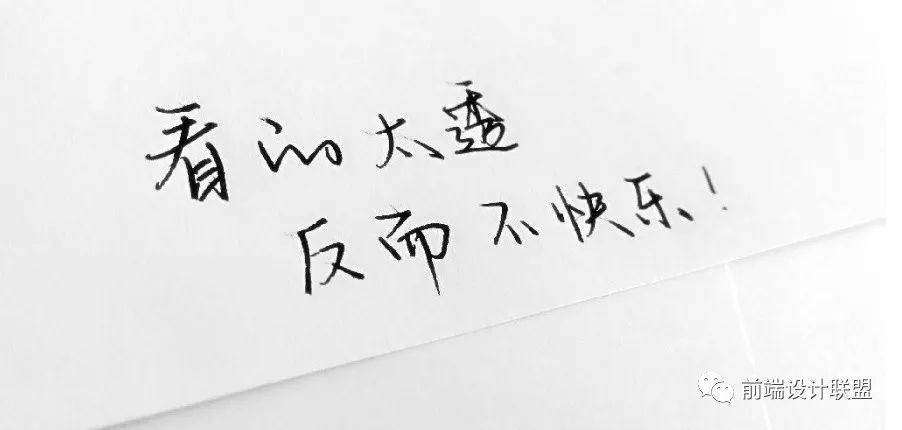 看的太透
反而不快乐！
前端设计联盟